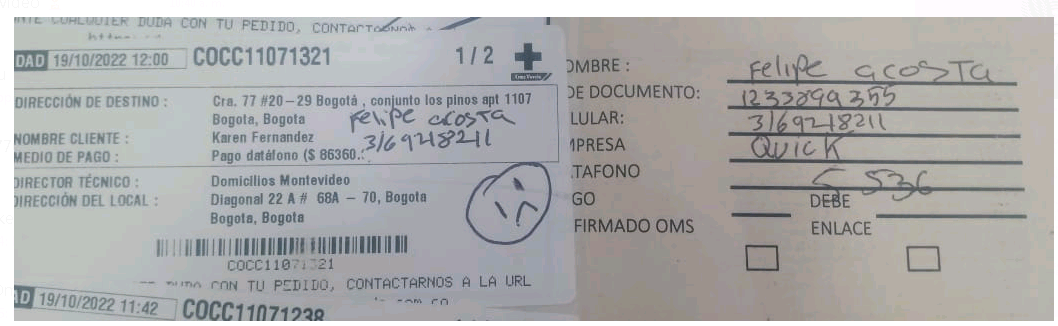 CUALQUIER DUDA CON TU PEDIDO,
DAD 19/10/2022 12:00 COCC11071321 1/2
Cruz Verde
DIRECCIÓN DE DESTINO : Cra. 77 #20-29 Bogotá , conjunto los pinos apt 1107
Bogota, Bogota
felipe acosta
NOMBRE CLIENTE : Karen Fernandez
3169218211
MEDIO DE PAGO : Pago datáfono ($ 86360.
DIRECTOR TÉCNICO : Domicilios Montevideo
DIRECCIÓN DEL LOCAL : Diagonal 22 A # 68A - 70, Bogota
Bogota, Bogota
COCC11071321
CON TU PEDIDO, CONTACTARNOS A LA URL
19/10/2022 11:42 COCC11071238
OMBRE : Felipe acosta
DE DOCUMENTO: 1233899355
LULAR: 3169218211
PRESA QUICK
TAFONO 5536
GO DEBE
FIRMADO OMS ENLACE